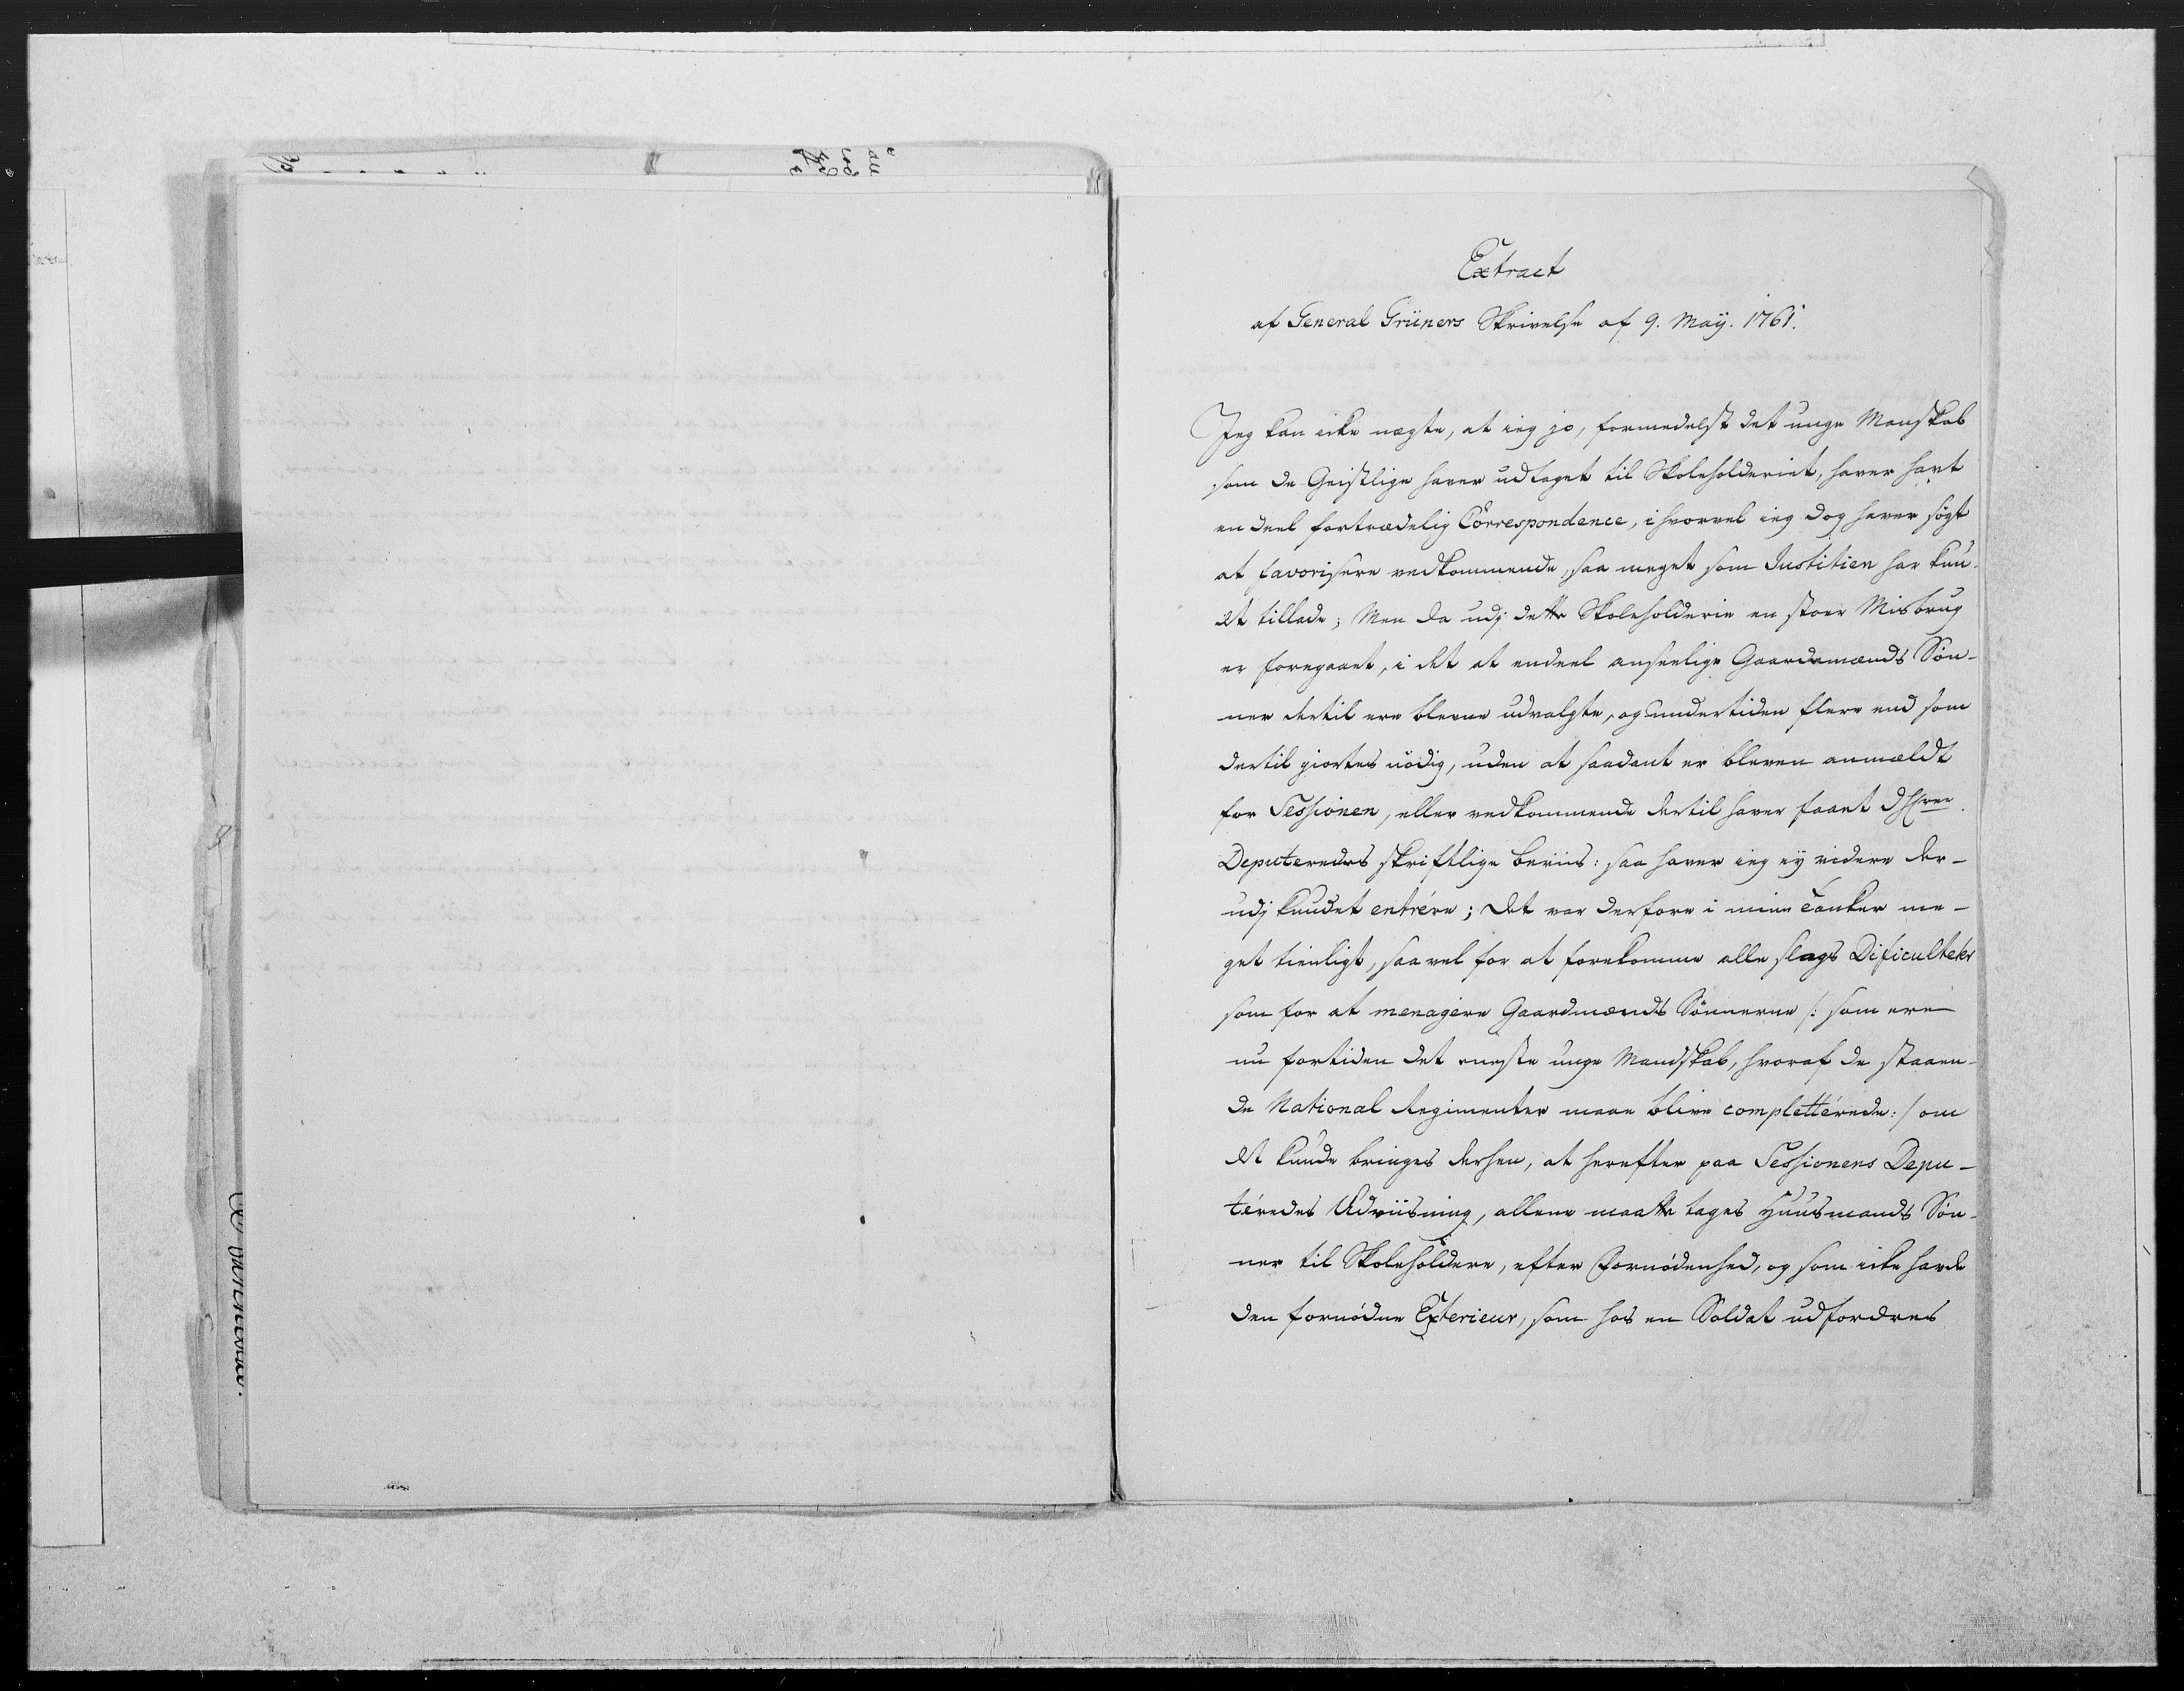 Extract
af General Grüners Skrivelse af 9. Maÿ. 1761.
Jeg kan icke nægte, at ieg jo, formedelst det unge Manskab
som de Geistlige haver udtaget til Skoleholderiet, haver havt
en deel fortrædelig Correspondence, i hvorvel ieg dog haver søgt
at favorisere vedkommende, saa meget som Justitien har kun-
det tillade; Men da udj dette Skoleholderie en stoer Misbrug
er foregaaet, i det at endeel anseelige Gaardemænds Søn-
ner dertil ere blevne udvalgte, og undertiden flere end som
dertil giortes nödig, uden at saadant er bleven anmældt
for Sessionen, eller vedkommende dertil haver faaet DHrrer
Deputeredes skriftlige beviis: saa haver ieg ej videre der-
udj kundet entrére; det var derfore i mine Tanker me-
get tienligt, saavel for at forekomme alle slags Dificulteter
som for at menagere Gaardmænds Sönnerne /: som ere
nu fortiden det eneste unge Mandskab, hvoraf de staaen-
de National Regimenter maae blive compléttérede :/ om
det kunde bringes derhen, at herefter paa Sessionens Depu-
téredes Udviisning, allene maatte tages Huusmands Søn-
ner til Skoleholdere, efter Fornødenhed, og som icke havde
den fornødne Exterieur, som hos en Soldat udfordres